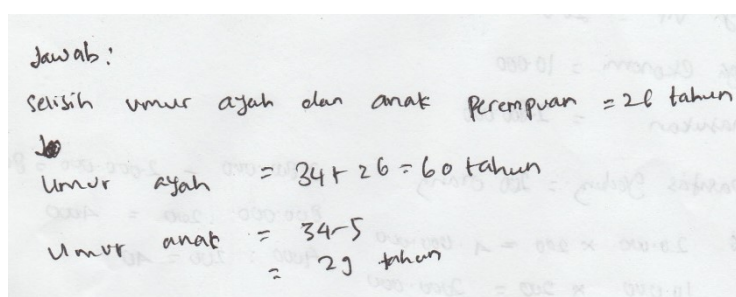 Jawab:
Selisih umur ayah dan anak Perempuan = 26 tahun
Umur ayah = 34 + 26 = 60 tahun
Umur anak = 34-5
= 29 tahun